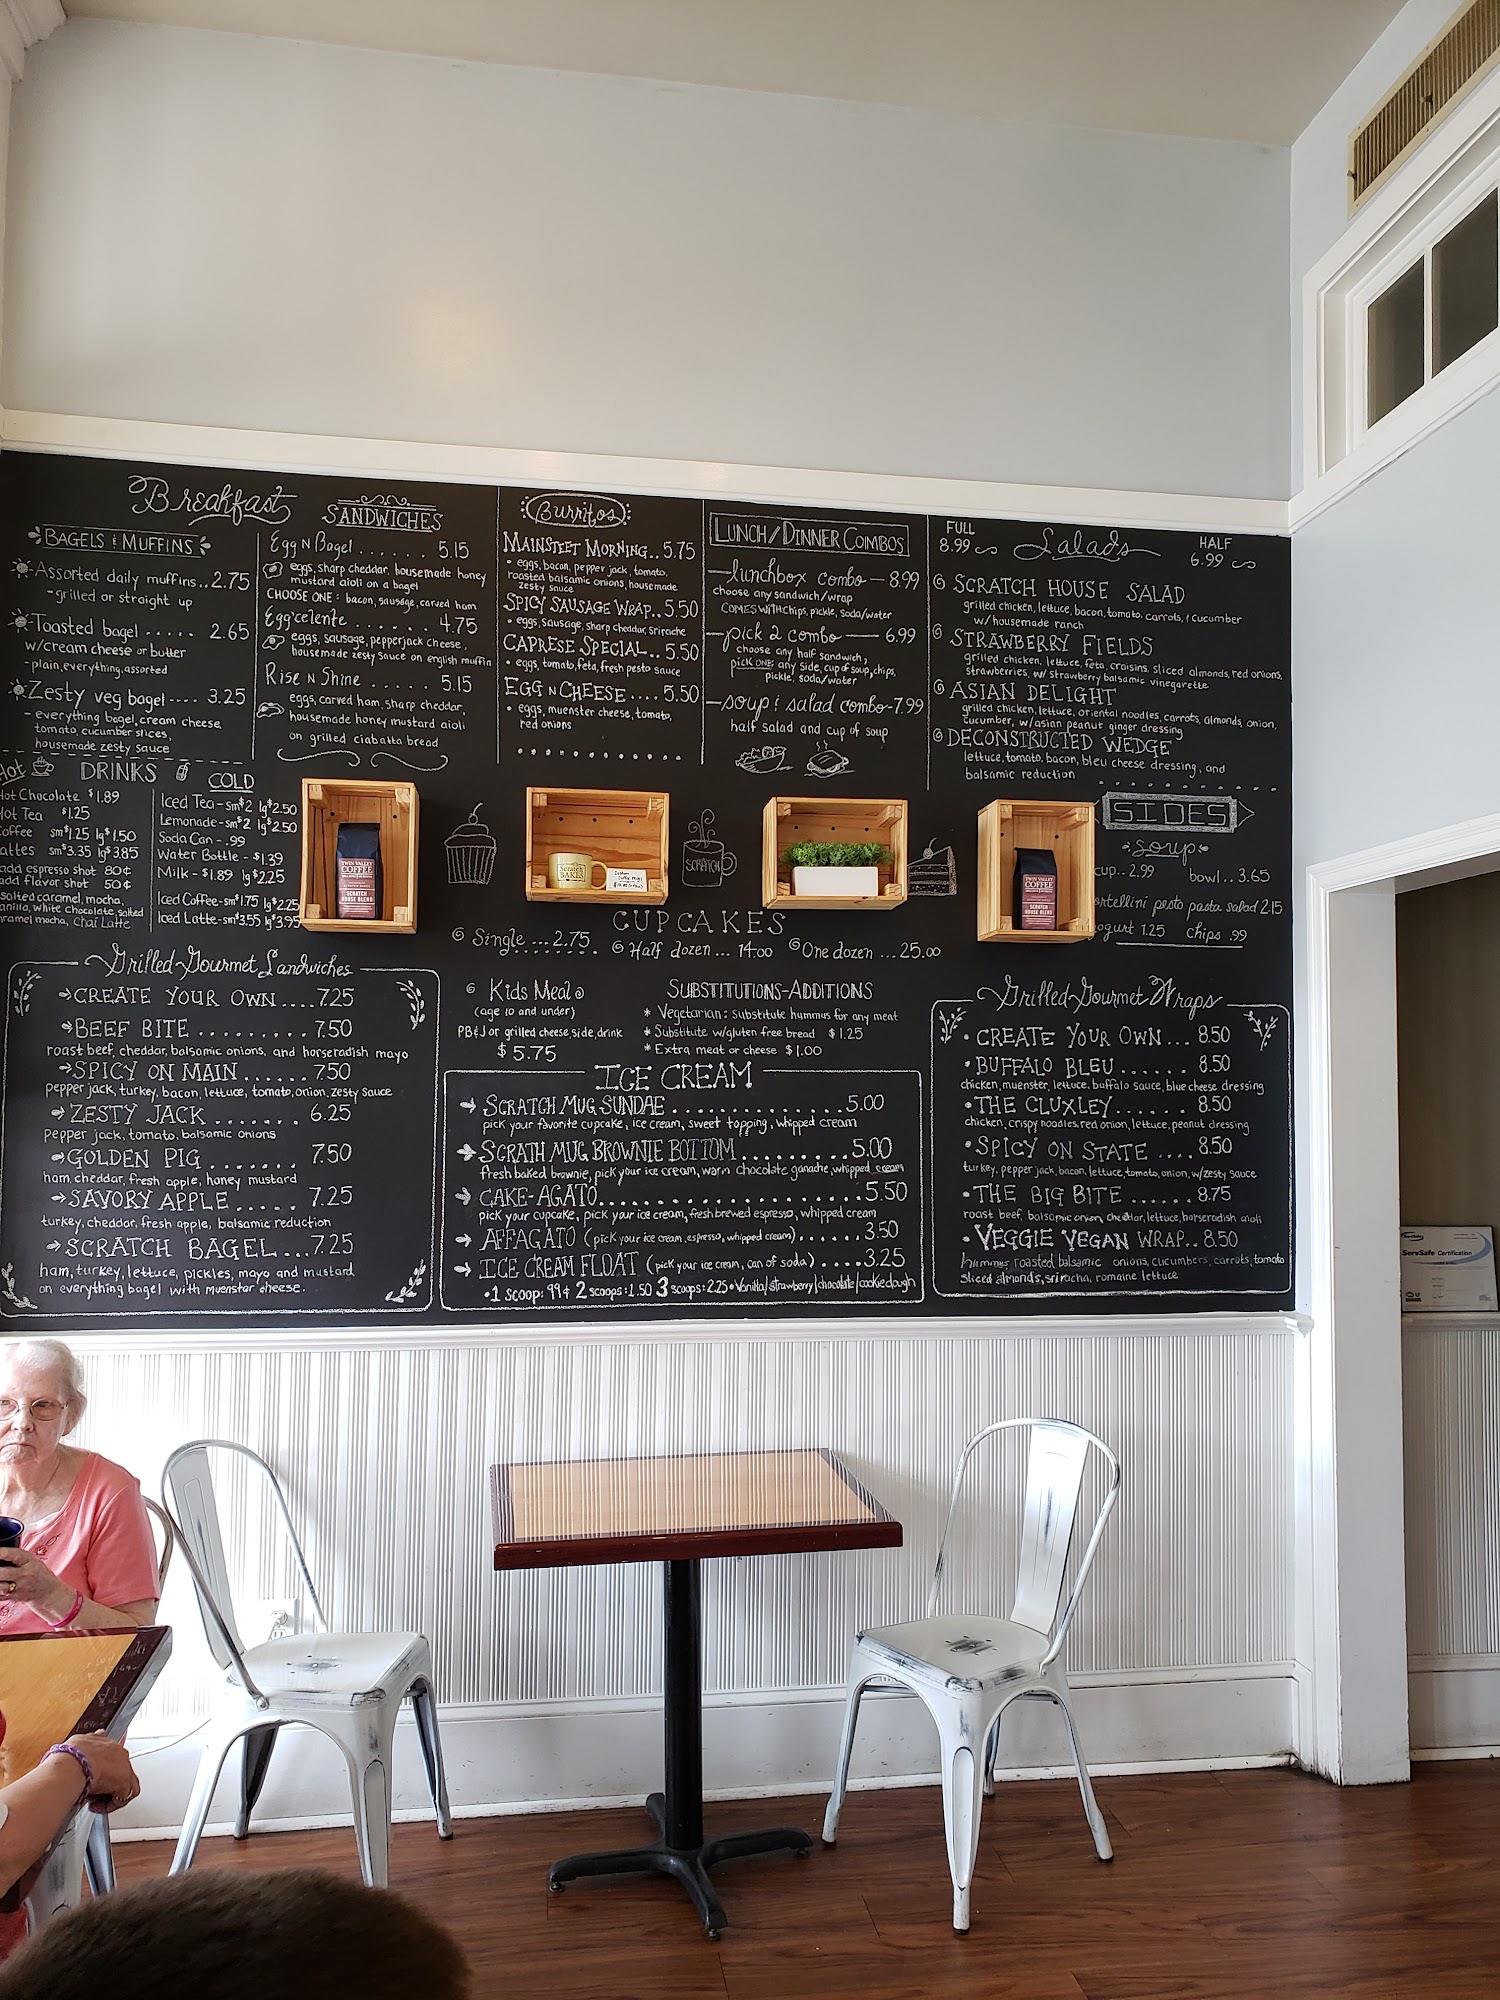 Breakfast
BAGELS & MUFFINS
Assorted daily muffins..2.75
-grilled or straight up
Toasted bagel ..... 2.65
w/cream cheese or butter
-plain, everything, assorted
Zesty veg bagel---- 3.25
- everything bagel, cream cheese,
tomato, cucumber slices,
housemade zesty sauce
SANDWICHES
Egg N Bagel ....... 5.15
eggs, sharp cheddar, housemade honey
mustard aioli on a bagel
CHOOSE ONE: bacon, sausage, carved ham
Egg'celente ....... 4.75
eggs, sausage, pepperjack cheese,
housemade zesty sauce on english muffin
Rise N Shine ..... 5.15
eggs, carved ham, sharp cheddar,
housemade honey mustard aioli
on grilled ciabatta bread
Burritos
MAINSTEET MORNING..5.75
• eggs, bacon, pepper jack, tomato,
roasted balsamic onions, housemade
zesty sauce
SPICY SAUSAGE WRAP..5.50
• eggs, sausage, sharp cheddar, Srirache
CAPRESE SPECIAL..5.50
• eggs, tomato, feta, fresh pesto sauce
EGG N CHEESE....5.50
• eggs, muenster cheese, tomato,
red onions
LUNCH/DINNER COMBOS
lunchbox combo — 8.99
choose any sandwich/wrap
COMES WITH chips, pickle, soda/water
pick 2 combo — 6.99
choose any half sandwich,
pick one: any side, cup of soup, chips,
pickle, soda/water
soup & salad combo-7.99
half salad and cup of soup
FULL
8.99
Salads
HALF
6.99
SCRATCH HOUSE SALAD
grilled chicken, lettuce, bacon, tomato, carrots, & cucumber
w/housemade ranch
STRAWBERRY FIELDS
grilled chicken, lettuce, feta, craisins, sliced almonds, red onions,
strawberries, w/ strawberry balsamic vinegarette
ASIAN DELIGHT
grilled chicken, lettuce, oriental noodles, carrots, almonds, onion,
cucumber, w/asian peanut ginger dressing
DECONSTRUCTED WEDGE
lettuce, tomato, bacon, bleu cheese dressing, and
balsamic reduction
Hot DRINKS COLD
Hot Chocolate $1.89
Hot Tea $1.25
Coffee sm$1.25 lg$1.50
Lattes sm$3.35 lg$3.85
add espresso shot 80¢
add flavor shot 50¢
salted caramel, mocha,
vanilla, white chocolate, salted
caramel mocha, Chai Latte
Iced Tea-sm$2 lg$2.50
Lemonade-sm$2 lg$2.50
Soda Can - .99
Water Bottle - $1.39
Milk - $1.89 lg$2.25
Iced Coffee-sm$1.75 lg$2.25
Iced Latte-sm$3.55 lg$3.95
TWIN VALLEY
COFFEE
SCRATCH
HOUSE BLEND
Scratch
BAKES
SCRATCH
TWIN VALLEY
COFFEE
SCRATCH
HOUSE BLEND
SIDES
soup
cup..2.99 bowl..3.65
tortellini pesto pasta salad 2.15
yogurt 1.25 chips .99
CUPCAKES
Single ...2.75 Half dozen ... 14.00 One dozen ... 25.00
Grilled Gourmet Sandwiches
CREATE YOUR OWN....7.25
BEEF BITE ......... 7.50
roast beef, cheddar, balsamic onions, and horseradish mayo
SPICY ON MAIN ...... 7.50
pepper jack, turkey, bacon, lettuce, tomato, onion, zesty sauce
ZESTY JACK ....... 6.25
pepper jack, tomato, balsamic onions
GOLDEN PIG ....... 7.50
ham, cheddar, fresh apple, honey mustard
SAVORY APPLE ..... 7.25
turkey, cheddar, fresh apple, balsamic reduction
SCRATCH BAGEL...7.25
ham, turkey, lettuce, pickles, mayo and mustard
on everything bagel with muenster cheese.
Kids Meal
(age 10 and under)
PB&J or grilled cheese, side, drink
$5.75
SUBSTITUTIONS-ADDITIONS
* Vegetarian: substitute hummus for any meat
* Substitute w/gluten free bread $1.25
* Extra meat or cheese $1.00
ICE CREAM
SCRATCH MUG SUNDAE ...............5.00
pick your favorite cupcake, ice cream, sweet topping, whipped cream
SCRATH MUG BROWNIE BOTTOM..........5.00
fresh baked brownie, pick your ice cream, warm chocolate ganache, whipped cream
CAKE-AGATO......................5.50
pick your cupcake, pick your ice cream, fresh brewed espresso, whipped cream
AFFAGATO (pick your ice cream, espresso, whipped cream)......3.50
ICE CREAM FLOAT (pick your ice cream, can of soda) ....3.25
•1 scoop: 99¢ 2 scoops: 1.50 3 scoops: 2.25 • Vanilla/strawberry/chocolate/cookie dough
Grilled Gourmet Wraps
• CREATE YOUR OWN... 8.50
• BUFFALO BLEU ...... 8.50
chicken, muenster, lettuce, buffalo sauce, blue cheese dressing
• THE CLUXLEY...... 8.50
chicken, crispy noodles, red onion, lettuce, peanut dressing
• SPICY ON STATE .... 8.50
turkey, pepper jack, bacon, lettuce, tomato, onion, w/zesty sauce
• THE BIG BITE ...... 8.75
roast beef, balsamic onion, cheddar, lettuce, horseradish aioli
• VEGGIE VEGAN WRAP.. 8.50
hummus, roasted balsamic onions, cucumbers, carrots, tomato
sliced almonds, sriracha, romaine lettuce
ServSafe Certification